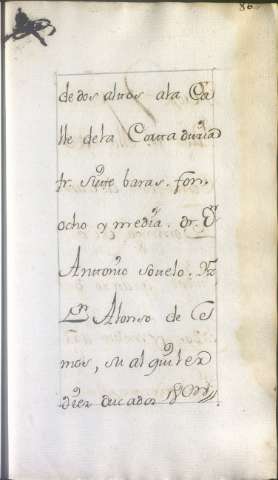 86
de dos altos a la Ca
lle de la Contaduria
fr. siete baras. fon.
ocho y media. dr. Dn
Antonio sotelo. Yz
Dn Alonso de Les
mos, su alquiler
diez ducados